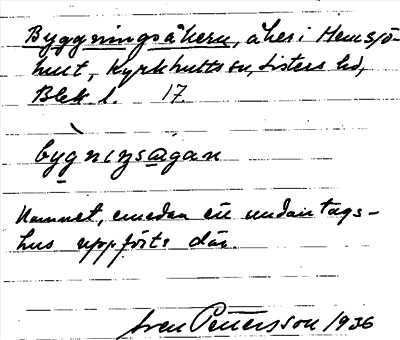 Byggningsåkern, åker i Hemsjö-
hult, Kyrkhults sn, Listers hd,
Blek. l. 17
bỳgnıŋsαgαn
Namnet, emedan ett undantags-
hus uppförts där.
Sven Pettersson 1936